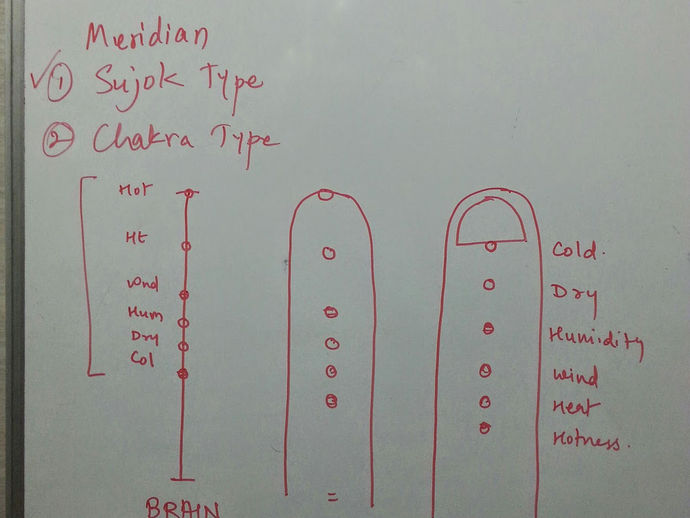 Meridian
① Sujok Type
② Chakra Type
Hot
Ht
Wind
Hum
Dry
Col
BRAIN
=
Cold.
Dry
Humidity
Wind
Heat
Hotness.